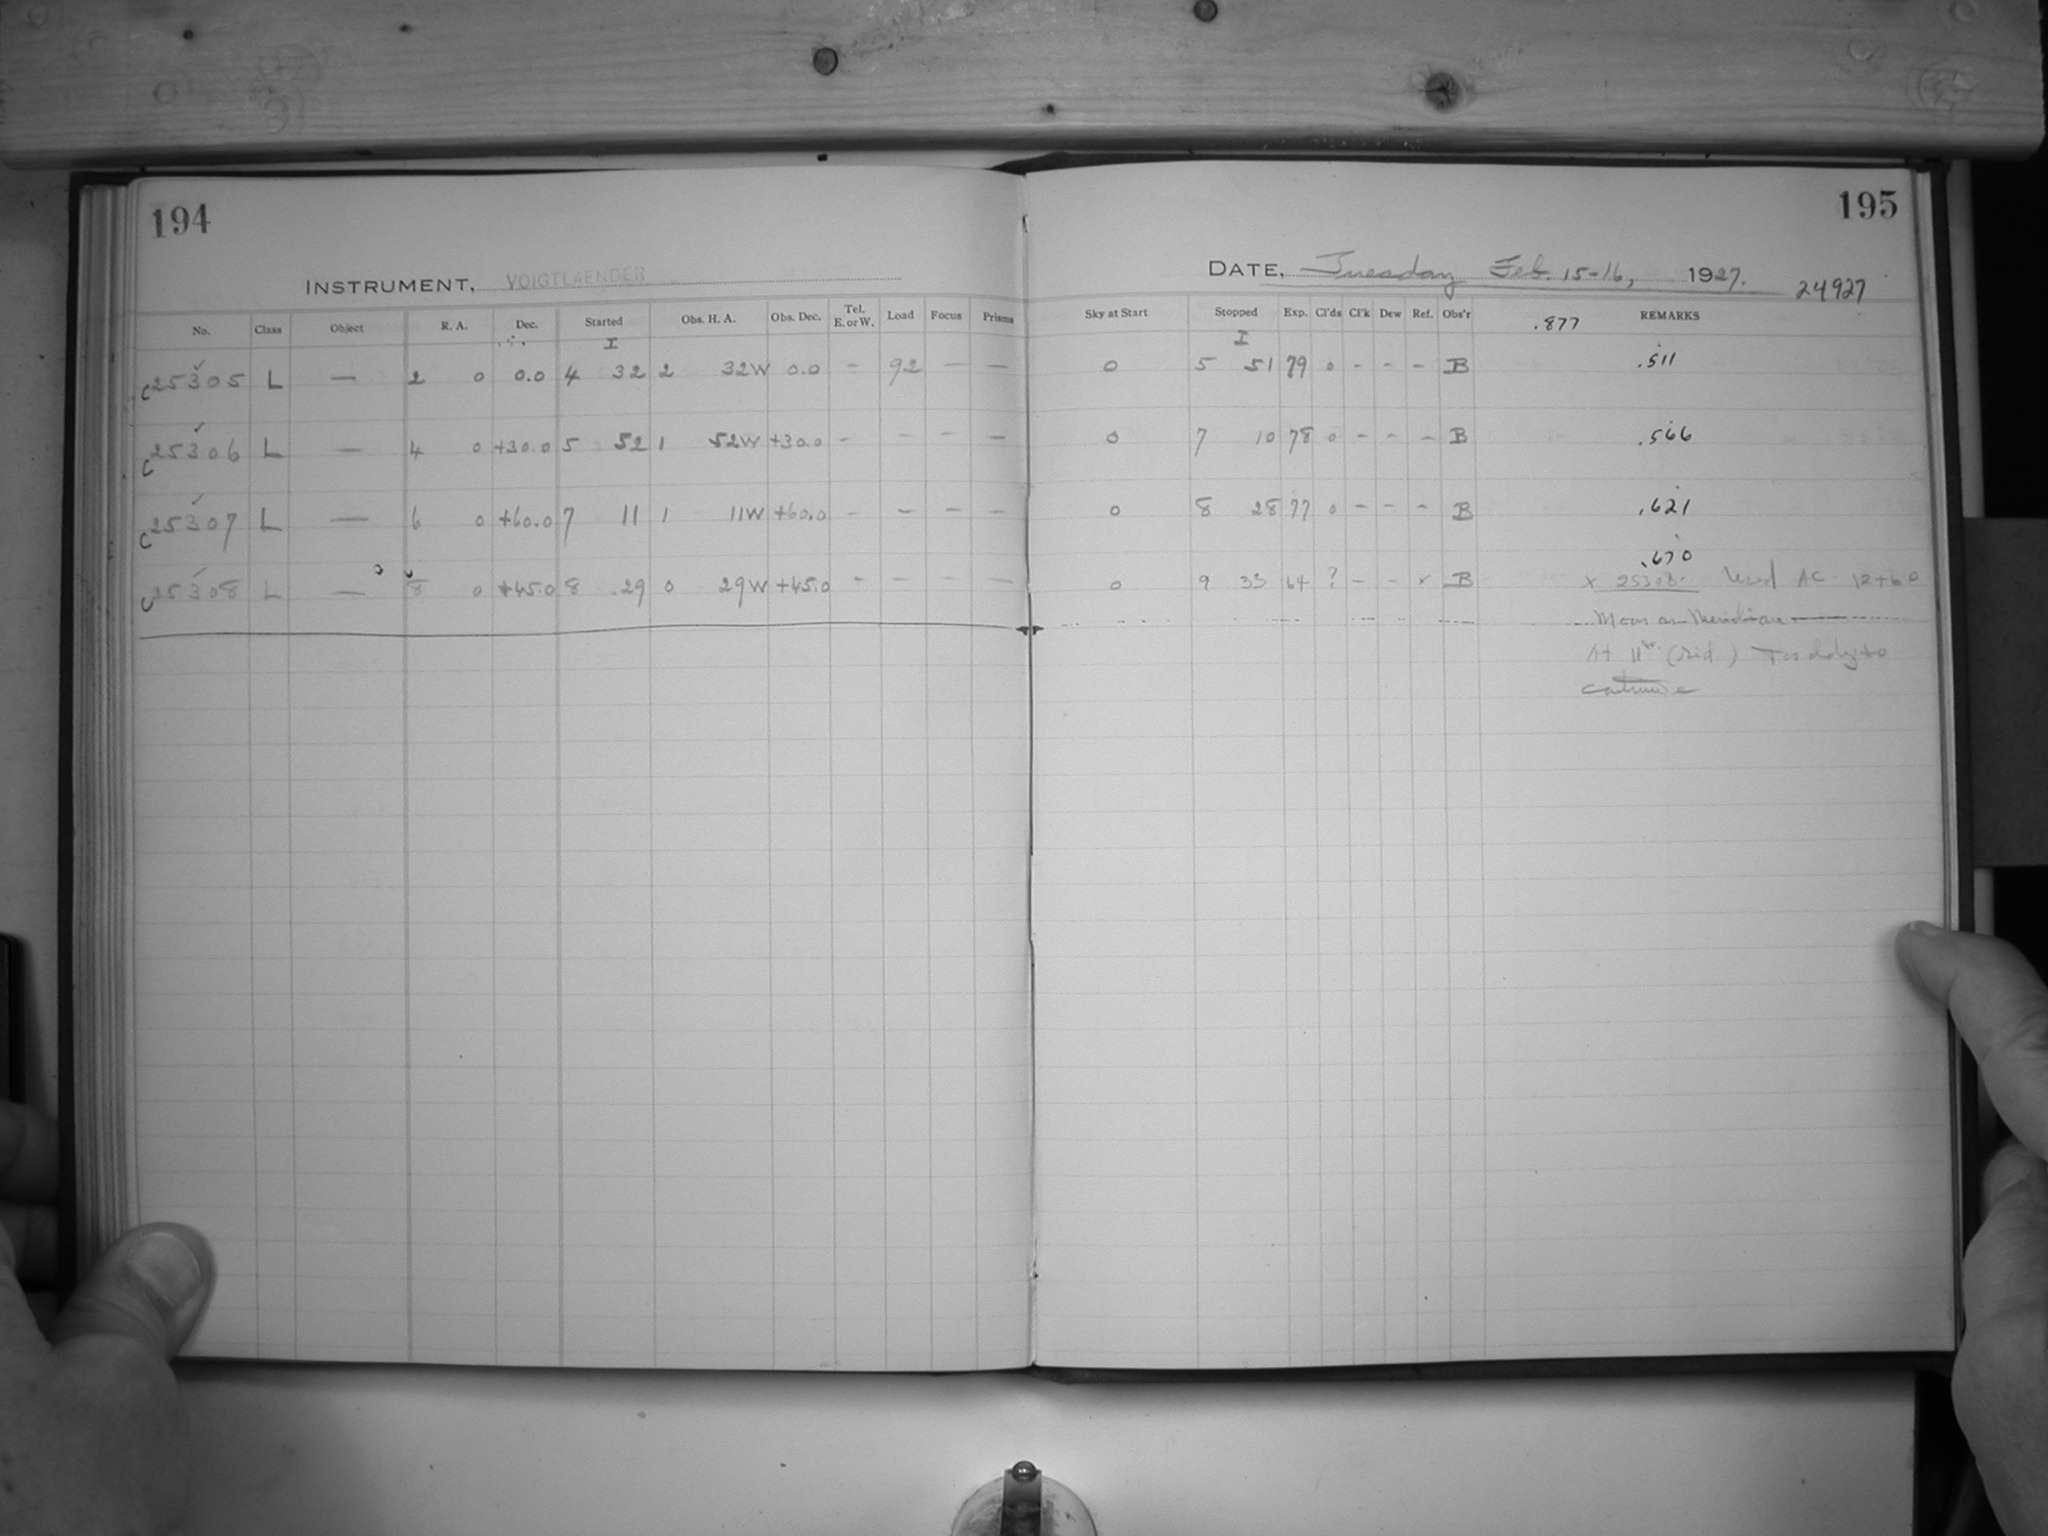 194
195
INSTRUMENT, VOIGTLAENDER
DATE, Tuesday Feb. 15-16, 1927. 24927
No. Class Object R. A. Dec. Started Obs. H. A. Obs. Dec. Tel. E. or W. Load Focus Prisms Sky at Start Stopped Exp. Cl'ds Cl'k Dew Ref. Obs'r .877 REMARKS
I I
C25305 ✓ L — 2 0 0.0 4 32 2 32W 0.0 - 92 — — 0 5 51 79 0 - - - B .511
C25306 ✓ L — 4 0 +30.0 5 52 1 52W +30.0 - - - - 0 7 10 78 0 - - - B .566
C25307 ✓ L — 6 0 +60.0 7 11 1 11W +60.0 - - - - 0 8 28 77 0 - - - B .621
.670
C25308 ✓ L — 8 0 +45.0 8 29 0 29W +45.0 - - - - 0 9 33 64 ? - - x B x 25308. Used AC 12+60
Moon on Meridian
At 11 hr (Sid.) Too cldy to
continue